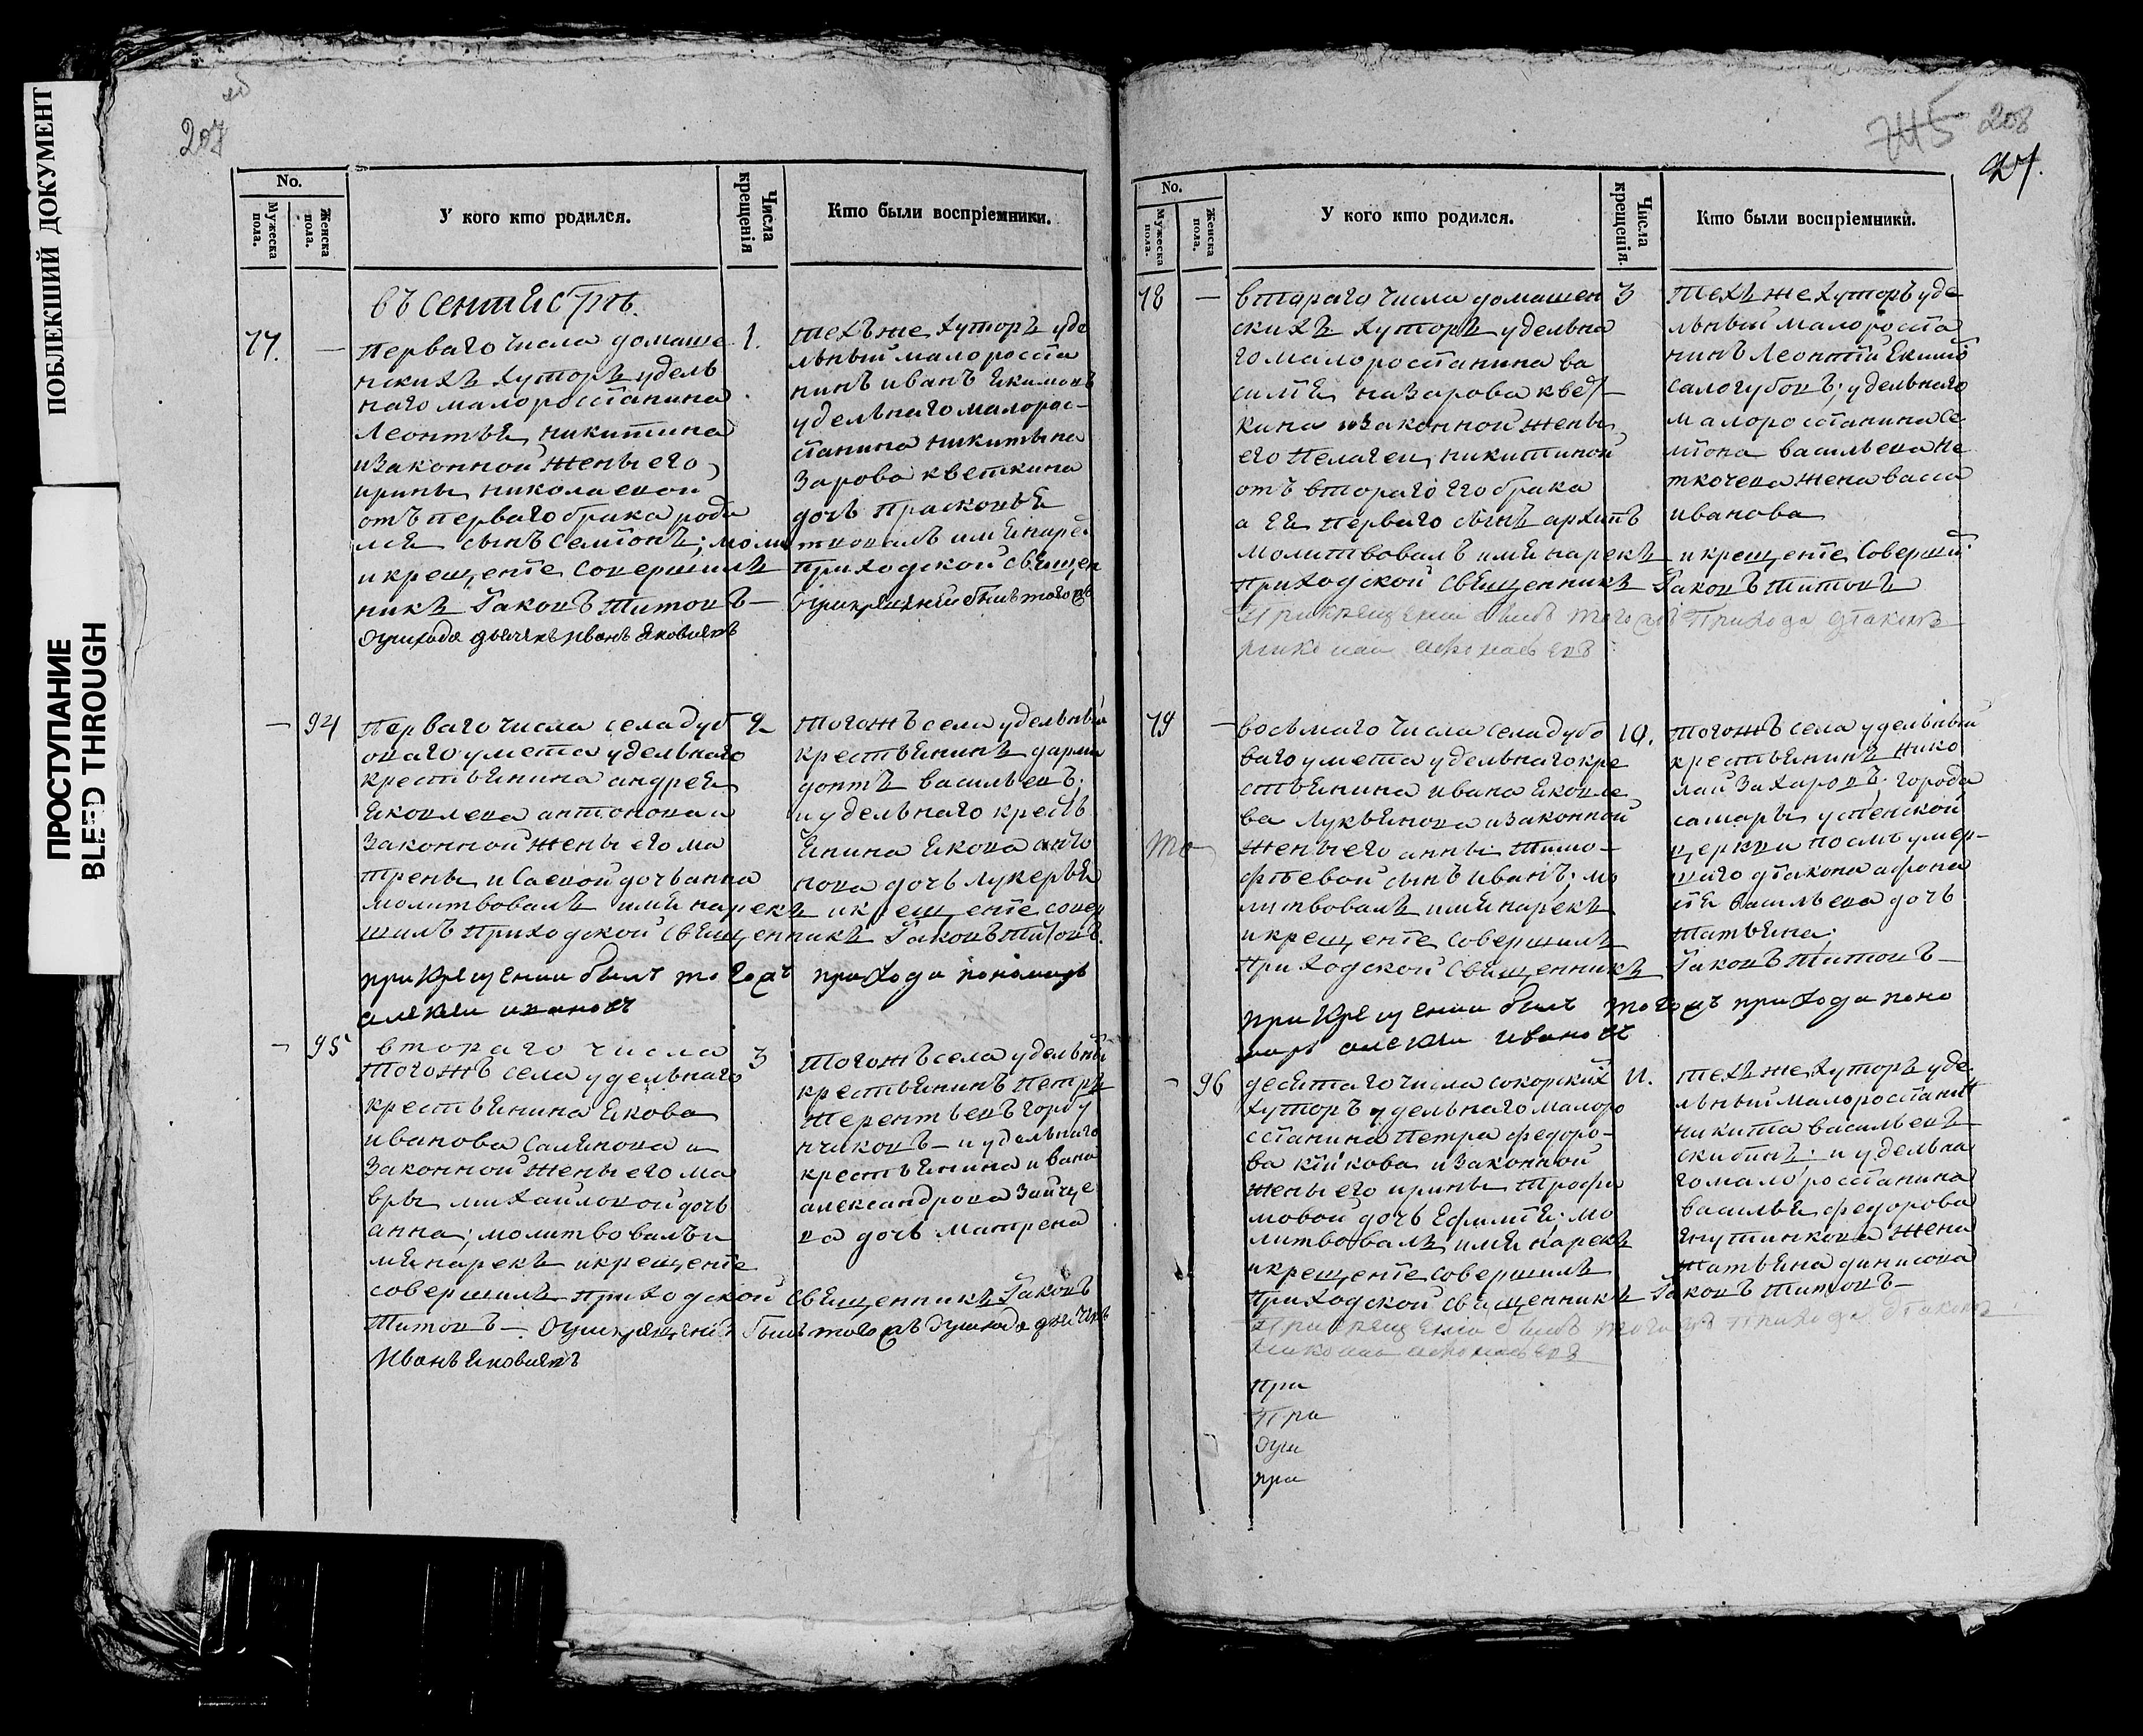 ПОБЛЕКШИЙ ДОКУМЕНТ
ПРОСТУПАНИЕ
BLEED THROUGH
207
No.
Мужеска пола.
Женска пола.
У кого кто родился.
Числа крещенія
Кто были воспріемники.
въ сентябрѣ.
77. —
перваго числа домаше
нскихъ хуторъ удель
наго малоросстанина
Леонтья никитина
изаконной жены его
ирины николаевой
отъ перваго брака роди
лся сынъ семіонъ; моли
и крещеніе совершилъ
никъ Іаковъ Титовъ —
прихода дьячекъ иванъ яковлевъ
1.
техъ же хуторъ уде
льный малоросстa
нинъ иванъ екимовъ
удельнаго малорос-
станина никиты на
зарова кветкина
дочь прасковья
твовалъ имя нарe.
приходской священ
при крещеніи былъ тогожъ
— 94
перваго числа села дуб
оваго умета удельнаго
крестьянина андрея
яковлева антонова и
законной жены его ма
трены исаевой дочь анна
молитвовалъ имя нарекъ и крещеніе совер
шилъ приходской священникъ Іаковъ Титовъ.
при крещении былъ тогожъ прихода пономарь
алексеи ивановъ
2
тогожъ села удельный
крестьянинъ
донтъ васильевъ;
и удельнаго кресть
янина якова анто
нова дочь лукерья
— 95
втораго числа
тогожъ села удельнаго
крестьянина якова
иванова салянова и
законной жены его ма
вры михайловой дочь
анна; молитвовалъ и
мя нарекъ и крещеніе
совершилъ приходской священникъ Іаковъ
Титовъ —. при крещеніи былъ тогожъ прихода дьячекъ
иванъ яковлевъ
3
тогожъ села удельный
крестьянинъ петръ
терентьевъ горбу
нчиковъ — и удельнаго
крестьянина ивана
александрова зайце
ва дочь матрена
208
No.
Мужеска пола.
Женска пола.
У кого кто родился.
Числа крещенія.
Кто были воспріемники.
78 —
втораго числа домашен
скихъ хуторъ удельна
го малоросстанина ва
силія назарова квет
кина изаконной жены
его пелагеи никитиной
отъ втораго его брака
а ея перваго сынъ архипъ
молитвовалъ имя нарекъ и крещеніе соверши.
приходской священникъ Іаковъ Титовъ
При крещении былъ тогожъ Прихода діаконъ
николаи афонасьевъ
3
техъ же хуторъ уде
льный малоросста
нинъ леонтій екимо
салогубовъ; удельнаго
малоросстанина се
міона васильева не
ткочева жена васса
иванова
79 —
восьмаго числа села дубо
ваго умета удельнаго кре
стьянина ивана яковле
ва лукьянова изаконной
жены его анны тимо-
феевой сынъ иванъ; мо
литвовалъ имя нарекъ
и крещеніе совершилъ
приходской священникъ Іаковъ Титовъ —
при крещении былъ тогожъ прихода поно
марь алексеи ивановъ
10.
тогожъ села удельный
крестьянинъ нико
лай захаровъ; города
самары успенской
церкви послѣ умер-
шаго діакона афона
сія васильева дочь
татьяна.
— 96
десятаго числа сокорских
хуторъ удельнаго малоро
сстанина петра федоро-
ва кійкова изаконной
жены его ирины трофи
мовой дочь ефимія; мо
литвовалъ имя нарекъ
и крещеніе совершилъ
приходской священникъ Іаковъ Титовъ —
При крещении былъ тогожъ прихода діаконъ
николаи афонасьевъ
11.
техъ же хуторъ уде
льный малоросстанин
никита васильевъ
скибинъ; и удельна
го малоросстанина
василья федорова
жена
татьяна динисова
при
При
при
при